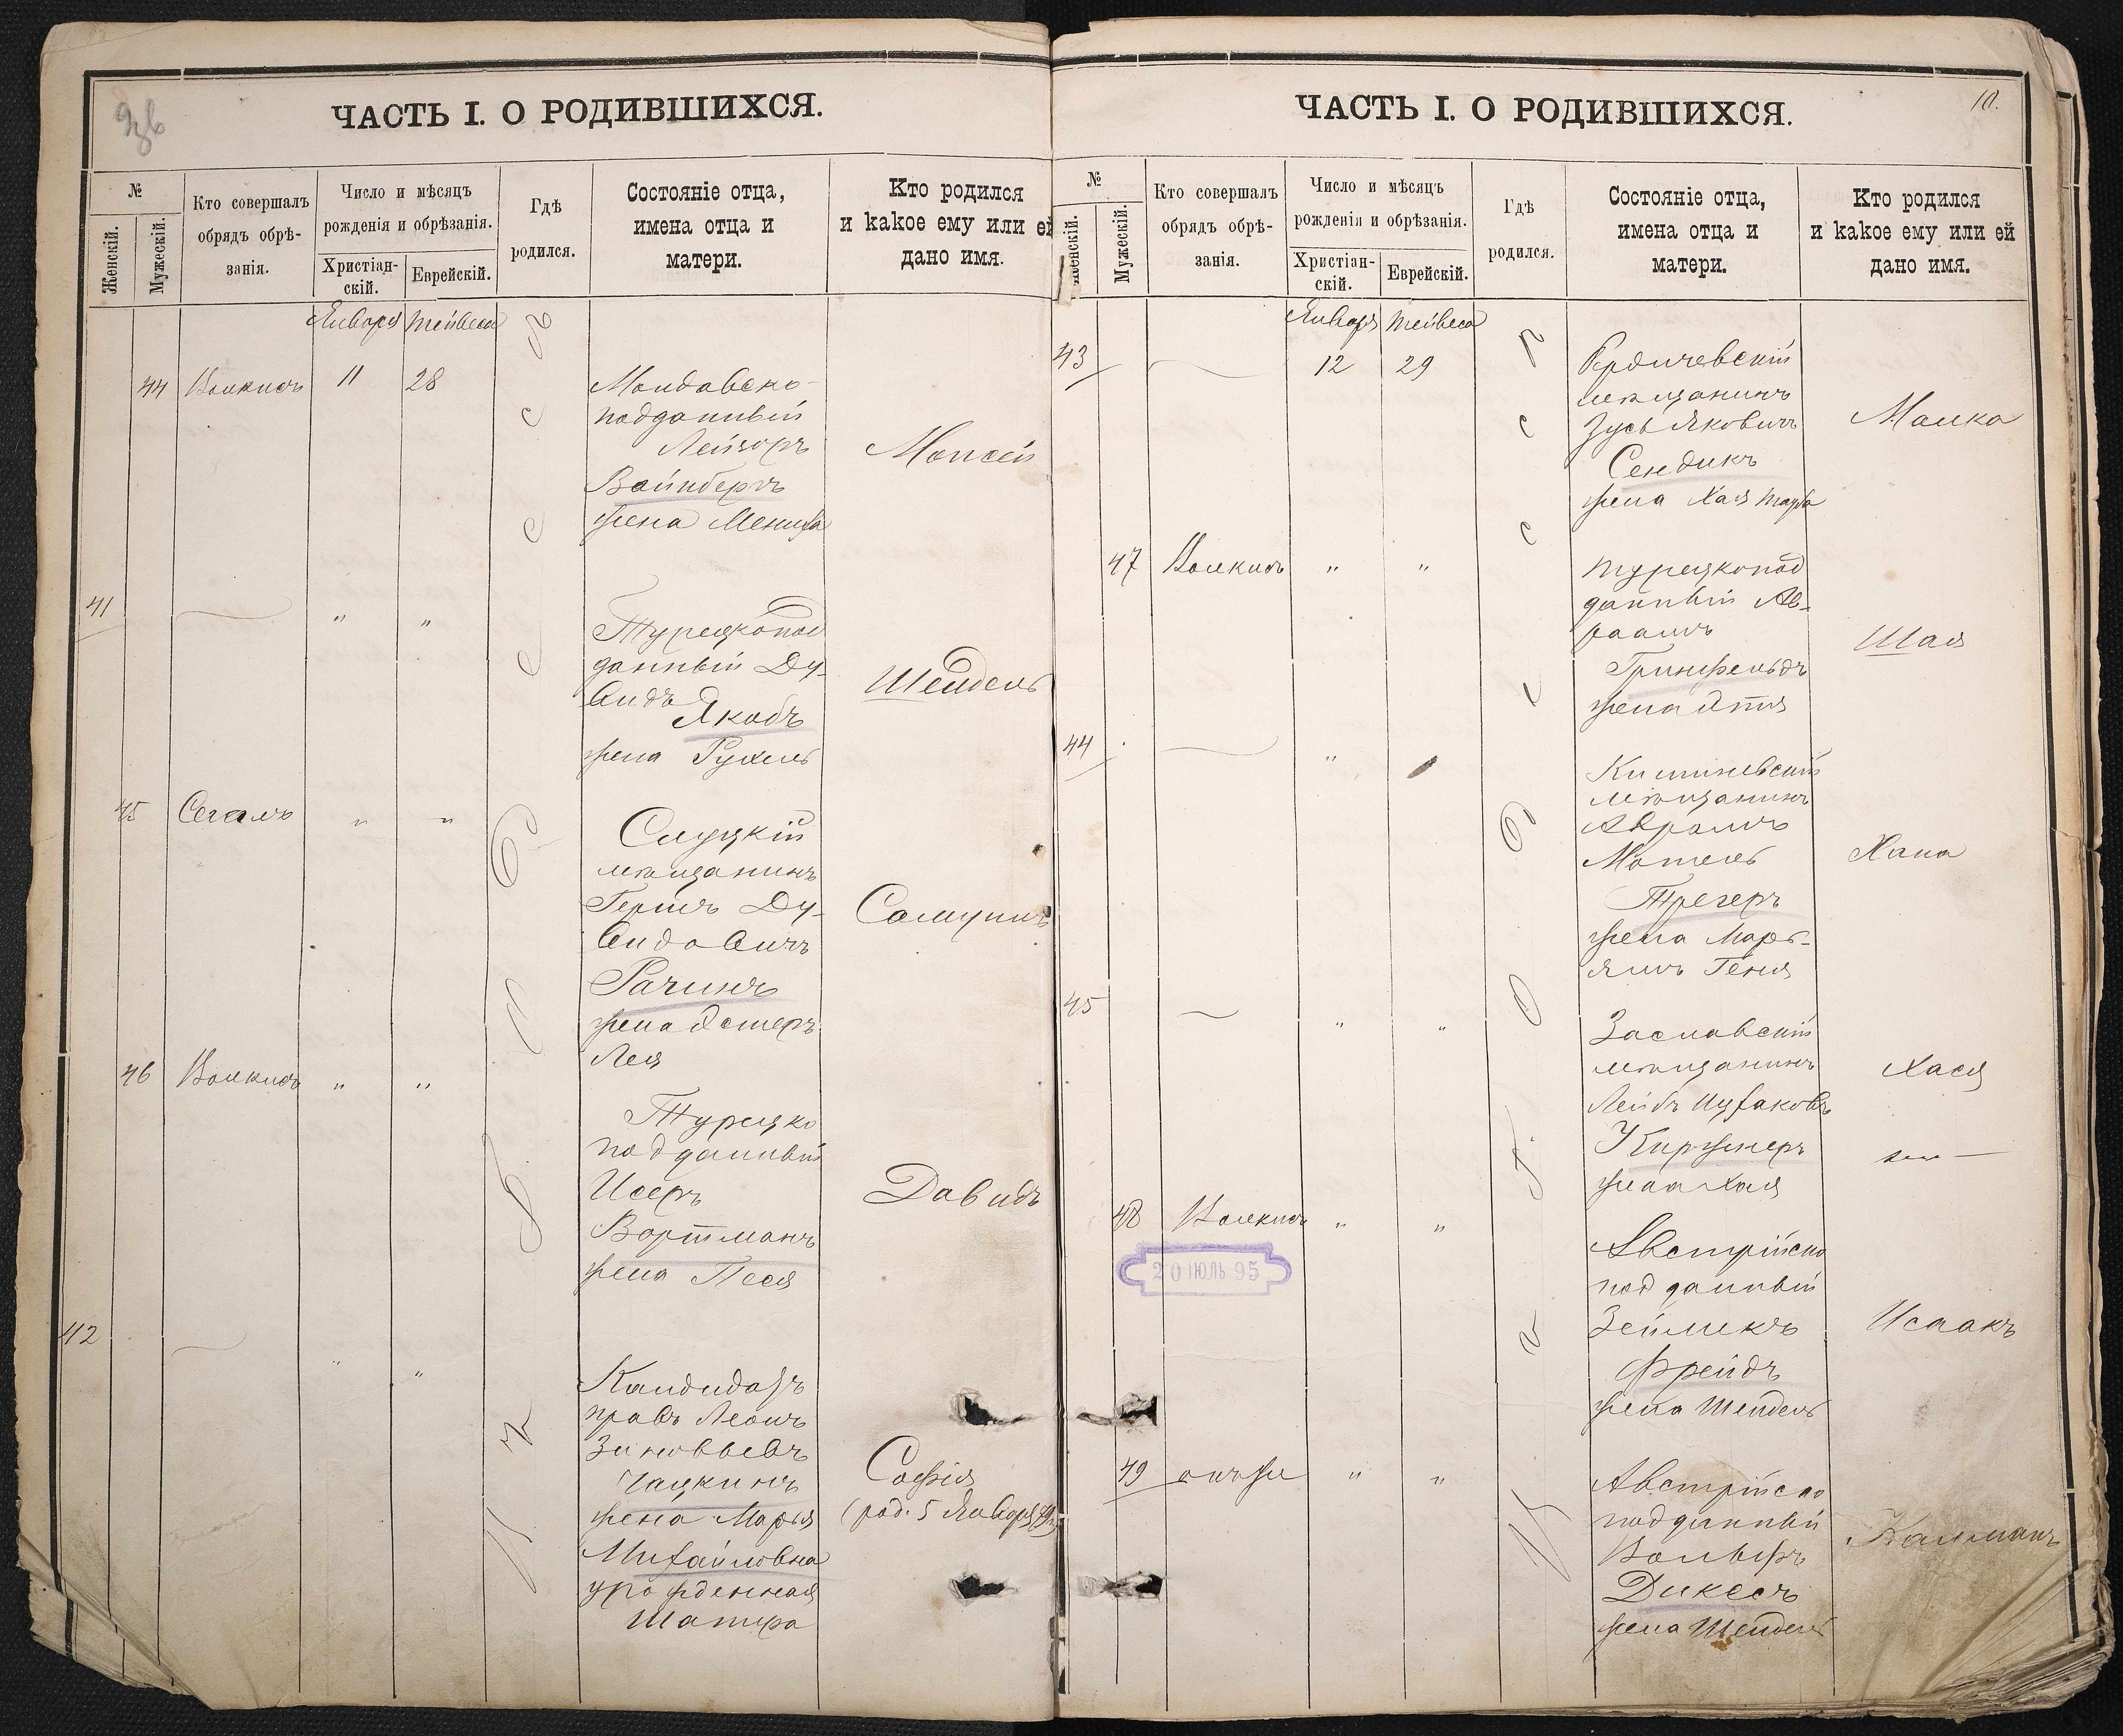 ЧАСТЬ I. О РОДИВШИХСЯ.
№
Женскій.
Мужескій.
Кто совершалъ
обрядъ обрѣ-
занія.
Число и мѣсяцъ
рожденія и обрѣзанія.
Христіан-
скій.
Еврейскій.
Гдѣ
родился.
Состояніе отца,
имена отца и
матери.
Кто родился
и какое ему или ей
дано имя.
Января Тейвеса
44 11 28
Молдавско-
подданный
Лейзоръ
Вайнбергъ
жена Мениха
Моисей
41 " "
Турецкопод
данный Ду-
видъ
Якобъ
жена Рухель
Шейдель
45 Сегалъ " "
Слуцкій
мѣщанинъ
Гершъ Ду-
видовичъ
Рачинъ
жена Эстеръ
Лея
Самуилъ
46 " "
Турецко
подданный
Исеръ
Вортманъ
жена Песя
Давидъ
42 " "
Кандидатъ
правъ Леонъ
Зиновьевъ
Чацкинъ
жена Марья
Михайловна
урожденная
Шапира
Софія
(род. 5 Января
ЧАСТЬ I. О РОДИВШИХСЯ.
10.
№
Женскій.
Мужескій.
Кто совершалъ
обрядъ обрѣ-
занія.
Число и мѣсяцъ
рожденія и обрѣзанія.
Христіан-
скій.
Еврейскій.
Гдѣ
родился.
Состояніе отца,
имена отца и
матери.
Кто родился
и какое ему или ей
дано имя.
Января Тейвеса
43 12 29
Бердичевскій
мѣщанинъ
Зусь Яковичъ
Сендикъ
жена Хая Тауба
Малка
47 " "
Турецкопод
данный Ав-
раамъ
Гринфельдъ
жена Этля
Шая
44 "
Кишиневскій
мѣщанинъ
Аврамъ
Мотель
Трегеръ
жена Марь-
ямъ Геня
Хана
45 " "
Заславскій
мѣщанинъ
Лейбъ Ицхаковъ
Киржнеръ
жена Хая
Хася
48 " "
20 ІЮЛЬ 95
Австрійско
подданный
Зейликъ
Фрейдъ
жена Шейдель
Исаакъ
49 онъ же " "
Австрійско
подданный
Вольфъ
Диксъ
жена Шейдель
Калманъ